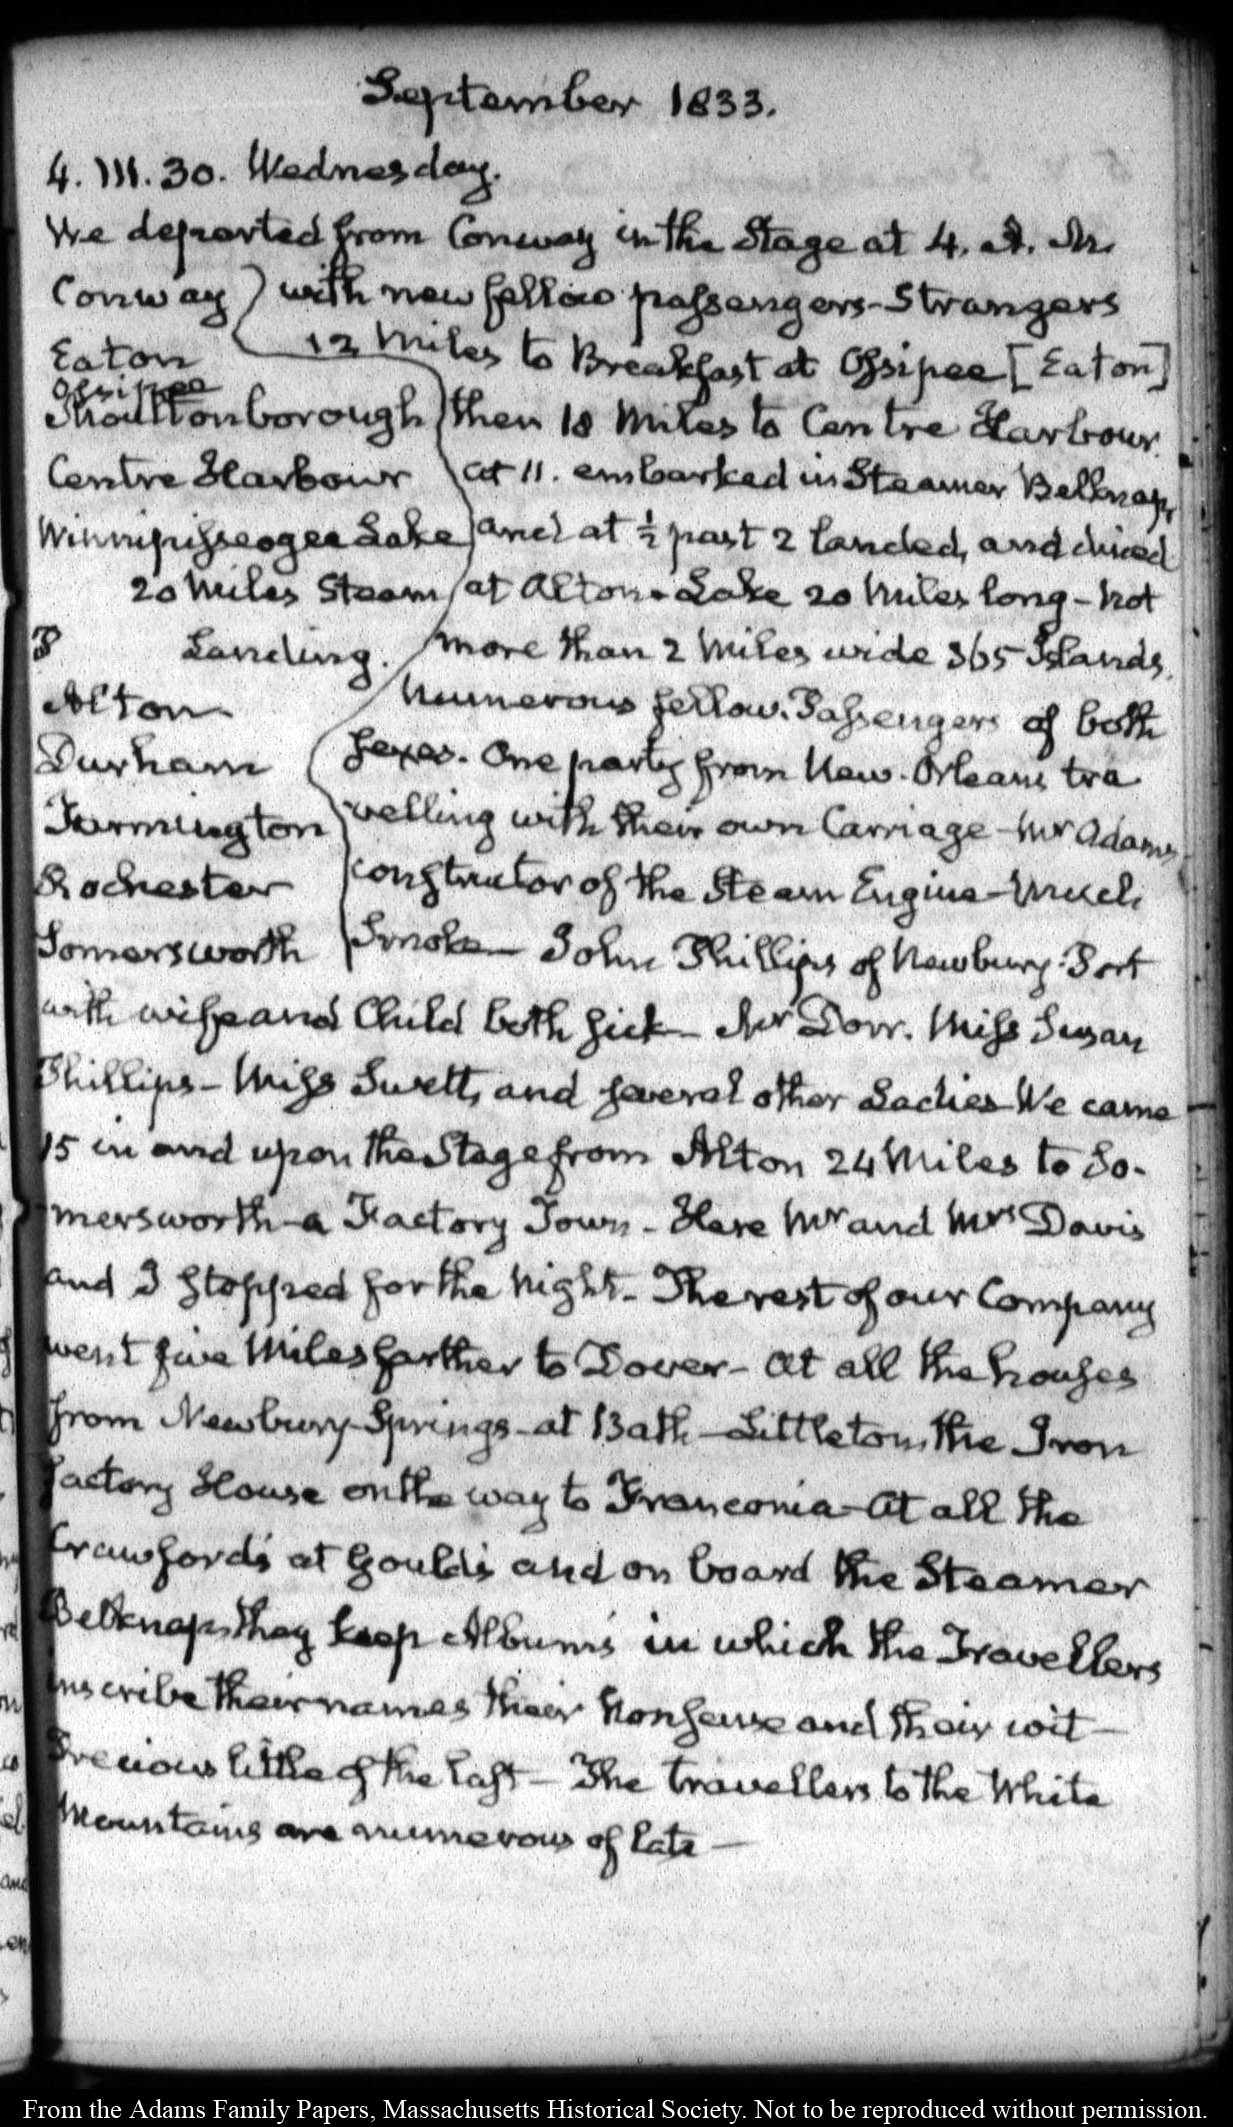 September 1833.
4. III. 30. Wednesday.
We departed from Conway in the Stage at 4. A. M.
Conway with new fellow passengers - Strangers
Eaton 12 Miles to Breakfast at Ossipee [Eaton]
Ossipee
Moultonborough then 18 Miles to Centre Harbour.
Centre Harbour at 11. embarked in Steamer Belknap,
Winnipisseogee Lake and at ½ past 2 landed, and dined
20 Miles Steam at Alton. Lake 20 Miles long - not
Landing. more than 2 Miles wide 365 Islands.
Alton Numerous fellow-Passengers of both
Durham sexes. One party from New-Orleans tra
Farmington velling with their own Carriage - Mr Adams
Rochester constructor of the Steam Engine - Much
Somersworth Smoke - John Phillips of Newbury-Port
with wife and Child both sick - Mr Dorr. Miss Susan
Phillips - Miss Swett, and several other Ladies - We came
15 in and upon the Stage from Alton 24 Miles to So-
mersworth - a Factory Town - Here Mr and Mrs Davis
and I stopped for the Night - The rest of our Company
went five Miles farther to Dover - At all the houses
from Newbury Springs - at Bath - Littleton, the Iron
factory House on the way to Franconia - At all the
Crawford's at Gould's and on board the Steamer
Belknap, they keep Album's in which the Travellers
inscribe their names their Nonsense and their wit -
Precious little of the last - The travellers to the White
Mountains are numerous of late -
From the Adams Family Papers, Massachusetts Historical Society. Not to be reproduced without permission.